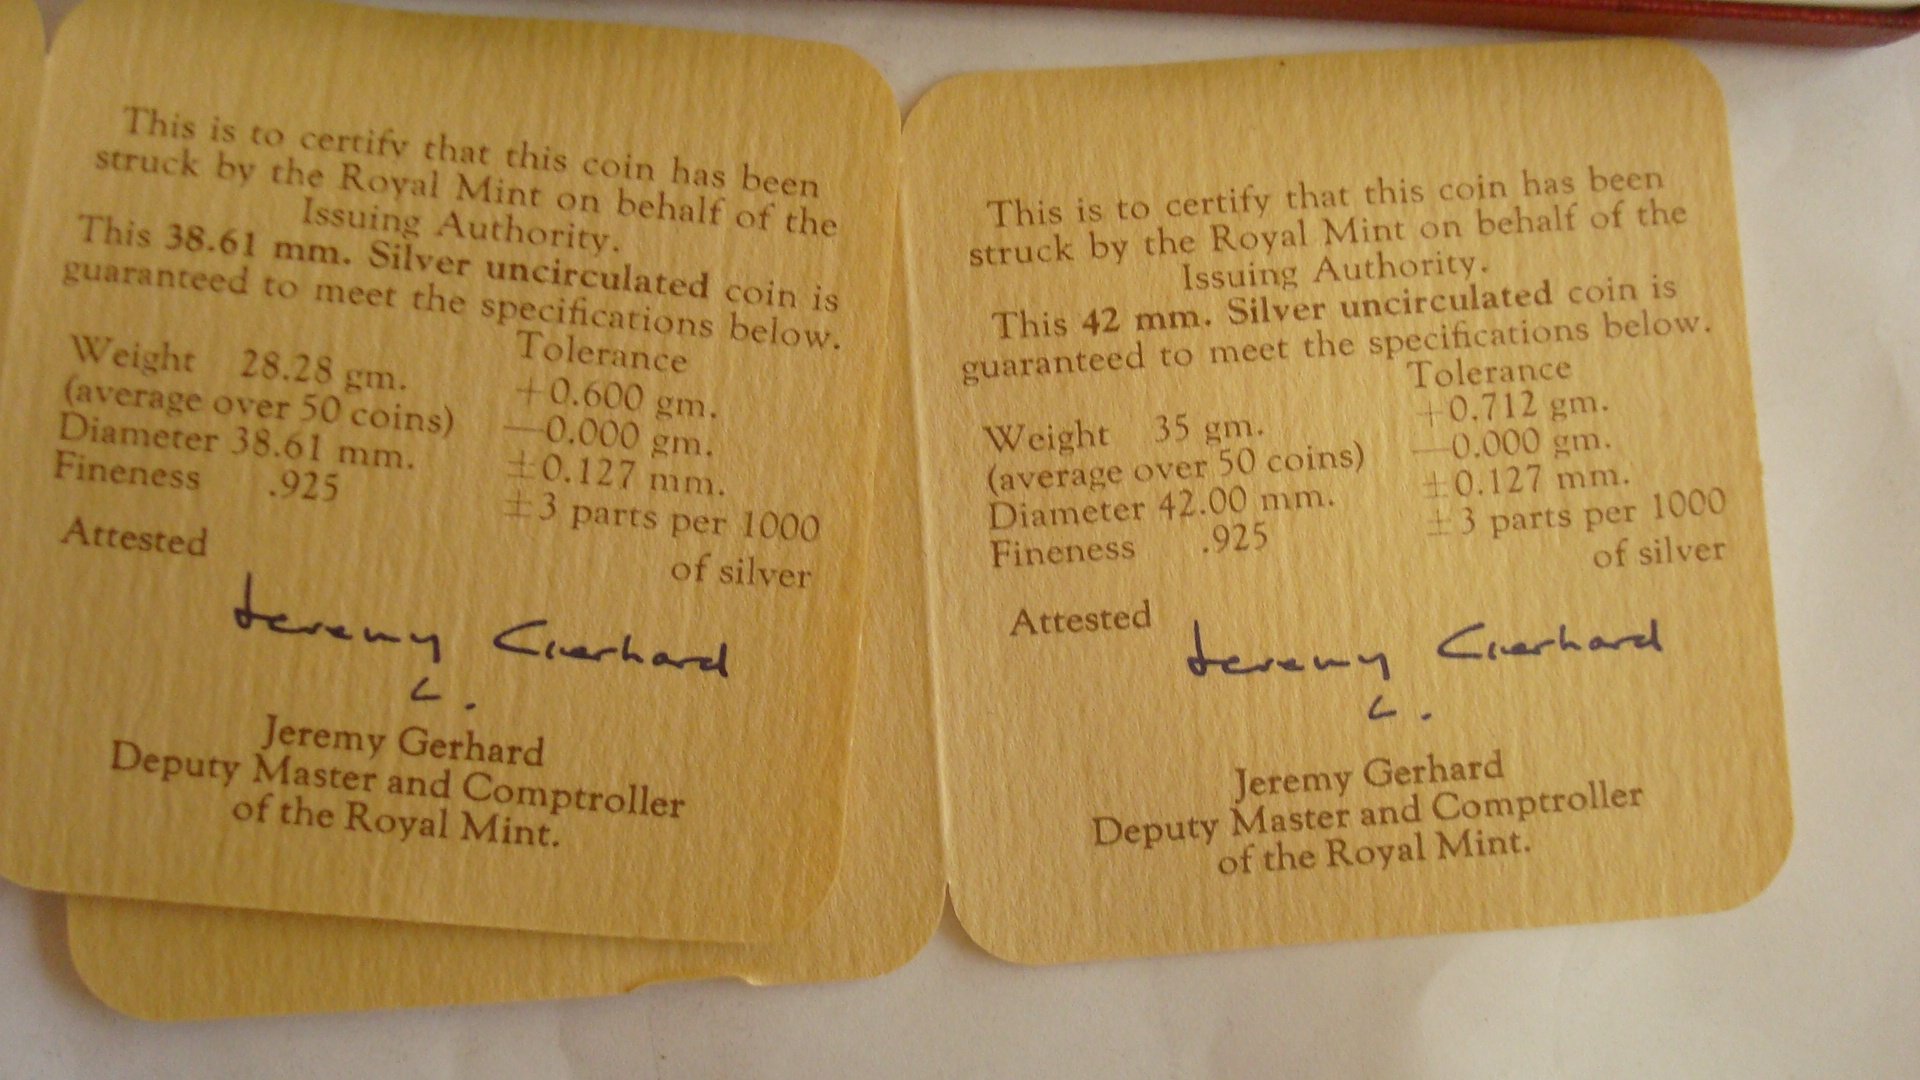 This is to certify that this coin has been
struck by the Royal Mint on behalf of the
Issuing Authority.
This 38.61 mm. Silver uncirculated coin is
guaranteed to meet the specifications below.
Tolerance
Weight 28.28 gm. +0.600 gm.
(average over 50 coins) —0.000 gm.
Diameter 38.61 mm. ±0.127 mm.
Fineness .925 ±3 parts per 1000
of silver
Attested
Jeremy Gerhard
Jeremy Gerhard
Deputy Master and Comptroller
of the Royal Mint.
This is to certify that this coin has been
struck by the Royal Mint on behalf of the
Issuing Authority.
This 42 mm. Silver uncirculated coin is
guaranteed to meet the specifications below.
Tolerance
Weight 35 gm. +0.712 gm.
(average over 50 coins) —0.000 gm.
Diameter 42.00 mm. ±0.127 mm.
Fineness .925 ±3 parts per 1000
of silver
Attested
Jeremy Gerhard
Jeremy Gerhard
Deputy Master and Comptroller
of the Royal Mint.